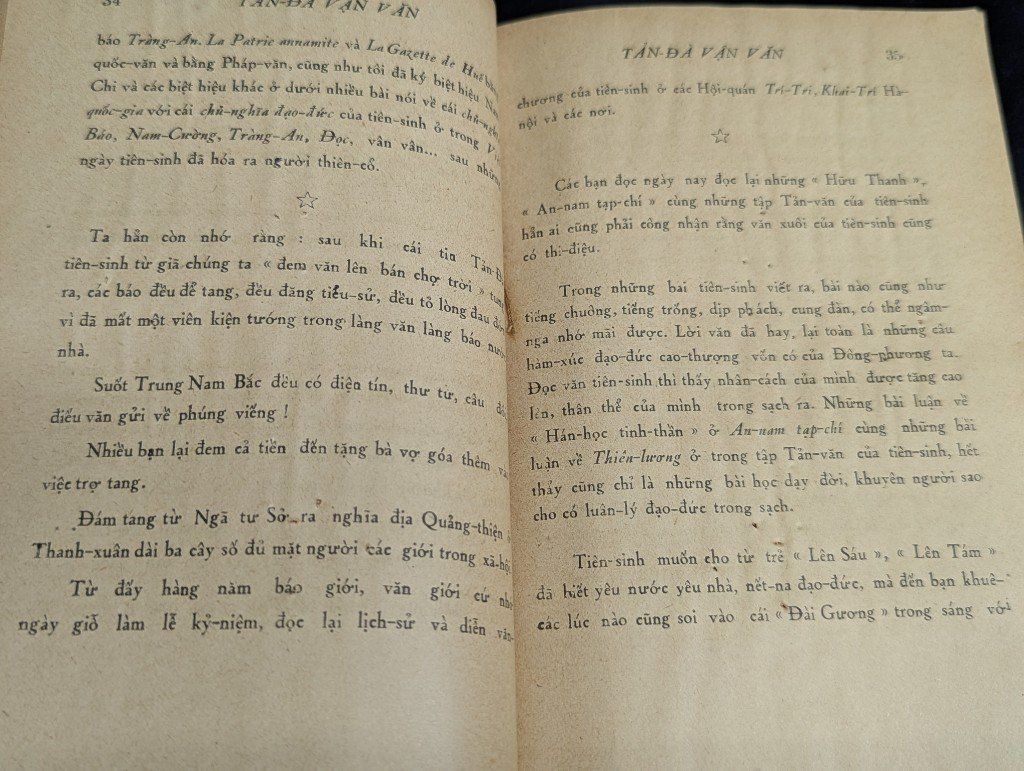 34 TẢN-ĐÀ VẬN VĂN
báo Tràng-An. La Patrie annamite và La Gazette de Huế bằng
quốc-văn và bằng Pháp-văn, cũng như tôi đã ký biệt hiệu Nam
Chi và các biệt hiệu khác ở dưới nhiều bài nói về cái chủ-nghĩa
quốc-gia với cái chủ-nghĩa đạo-đức của tiên-sinh ở trong
Báo, Nam-Cường, Tràng-An, Đọc, vân vân... sau những
ngày tiên-sinh đã hóa ra người thiên-cổ.
Ta hẳn còn nhớ rằng : sau khi cái tin Tản-Đà
tiên-sinh từ giã chúng ta « đem văn lên bán chợ trời »
ra, các báo đều để tang, đều đăng tiểu-sử, đều tỏ lòng đau đớn
vì đã mất một viên kiện tướng trong làng văn làng báo nước
nhà.
Suốt Trung Nam Bắc đều có điện tín, thư từ, câu đối
điếu văn gửi về phúng viếng !
Nhiều bạn lại đem cả tiền đến tặng bà vợ góa thêm vào
việc trợ tang.
Đám tang từ Ngã tư Sở ra nghĩa địa Quảng-thiện
Thanh-xuân dài ba cây số đủ mặt người các giới trong xã-hội.
Từ đấy hàng năm báo giới, văn giới cứ nhớ
ngày giỗ làm lễ kỷ-niệm, đọc lại lịch-sử và diễn văn-
TẢN-ĐÀ VẬN VĂN 35
chương của tiên-sinh ở các Hội-quán Trí-Tri, Khai-Trí Hà-
nội và các nơi.
Các bạn đọc ngày nay đọc lại những « Hữu Thanh »,
« An-nam tạp-chí » cùng những tập Tản-văn của tiên-sinh
hẳn ai cũng phải công nhận rằng văn xuôi của tiên-sinh cũng
có thi-điệu.
Trong những bài tiên-sinh viết ra, bài nào cũng như
tiếng chuông, tiếng trống, dịp phách, cung đàn, có thể ngâm-
nga nhớ mãi được. Lời văn đã hay, lại toàn là những câu
hàm-xúc đạo-đức cao-thượng vốn có của Đông-phương ta.
Đọc văn tiên-sinh thì thấy nhân-cách của mình được tăng cao
lên, thân thể của mình trong sạch ra. Những bài luận về
« Hán-học tinh-thần » ở An-nam tạp-chí cùng những bài
luận về Thiên-lương ở trong tập Tản-văn của tiên-sinh, hết
thảy cũng chỉ là những bài học dạy đời, khuyên người sao
cho có luân-lý đạo-đức trong sạch.
Tiên-sinh muốn cho từ trẻ « Lên Sáu », « Lên Tám »
đã biết yêu nước yêu nhà, nết-na đạo-đức, mà đến bạn khuê-
các lúc nào cũng soi vào cái « Đài Gương » trong sáng với